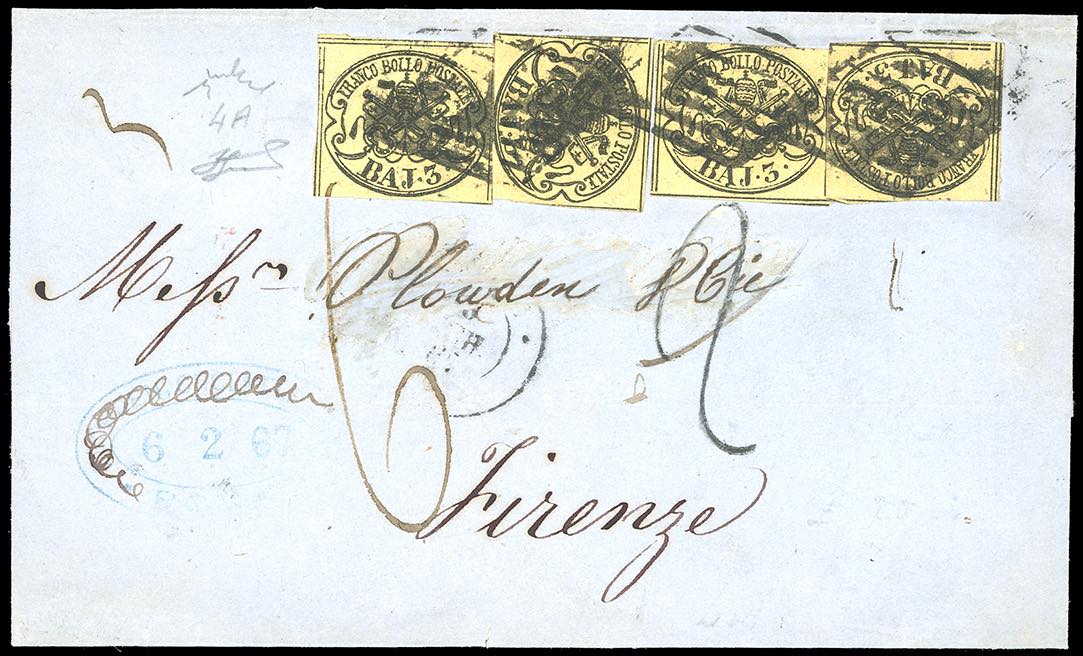 FRANCO BOLLO POSTALE
BAJ. 3.
FRANCO BOLLO POSTALE
BAJ. 3.
FRANCO BOLLO POSTALE
BAJ. 3.
FRANCO BOLLO POSTALE
BAJ. 3.
4A
Messrs Plowden & Cie
6
6 2 67
Firenze